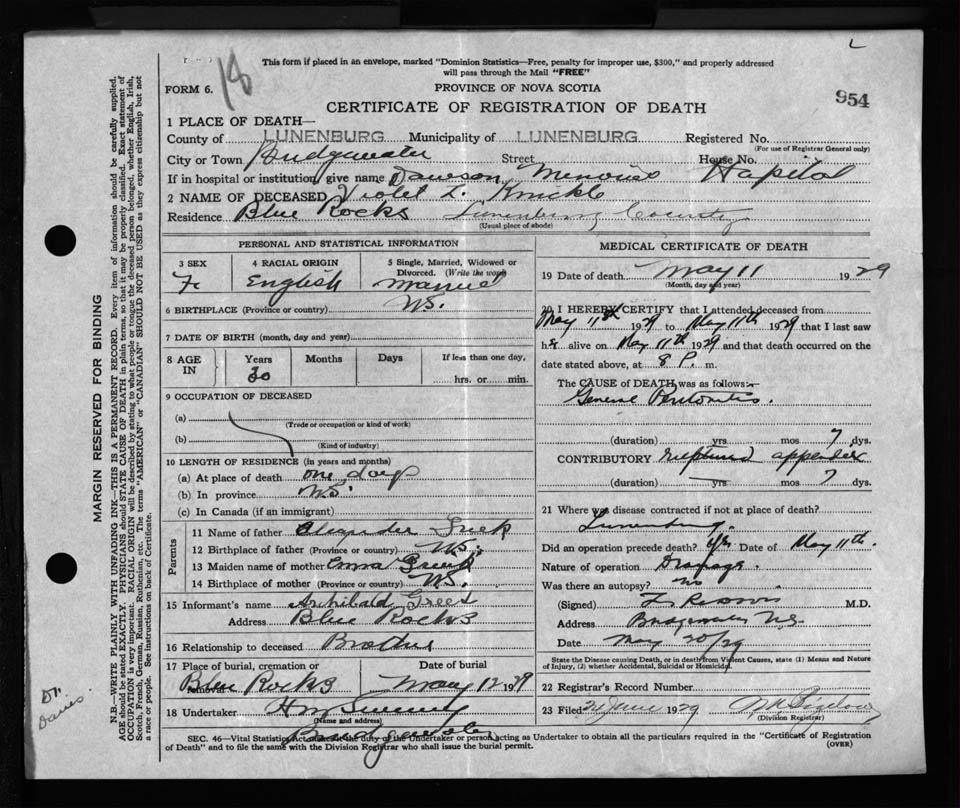 18
L
This form if placed in an envelope, marked "Dominion Statistics—Free, penalty for improper use, $300," and properly addressed
will pass through the Mail "FREE"
FORM 6.
PROVINCE OF NOVA SCOTIA
CERTIFICATE OF REGISTRATION OF DEATH
954
1 PLACE OF DEATH—
County of LUNENBURG Municipality of LUNENBURG Registered No.
(For use of Registrar General only)
City or Town Bridgewater Street House No.
If in hospital or institution, give name Dawson Memorial Hospital
2 NAME OF DECEASED Violet L. Knickle
Residence Blue Rocks Lunenburg County
(Usual place of abode)
PERSONAL AND STATISTICAL INFORMATION
3 SEX 4 RACIAL ORIGIN 5 Single, Married, Widowed or Divorced. (Write the word)
F. English Married
6 BIRTHPLACE (Province or country) N.S.
7 DATE OF BIRTH (month, day and year)
8 AGE IN Years Months Days If less than one day, hrs. or min.
30
9 OCCUPATION OF DECEASED
(a)
(Trade or occupation or kind of work)
(b)
(Kind of industry)
10 LENGTH OF RESIDENCE (in years and months)
(a) At place of death one day
(b) In province N.S.
(c) In Canada (if an immigrant)
Parents
11 Name of father Alexander
12 Birthplace of father (Province or country) N.S.
13 Maiden name of mother Emma
14 Birthplace of mother (Province or country) N.S.
15 Informant's name Archibald
Address Blue Rocks
16 Relationship to deceased Brother
17 Place of burial, cremation or removal Date of burial
Blue Rocks May 12 1929
18 Undertaker H
(Name and address)
Bridgewater
MEDICAL CERTIFICATE OF DEATH
19 Date of death May 11 1929
(Month, day and year)
20 I HEREBY CERTIFY that I attended deceased from
May 11th 1929 to May 11th 1929 that I last saw
her alive on May 11th 1929 and that death occurred on the
date stated above, at 8 P. m.
The CAUSE of DEATH was as follows:—
General Peritonitis.
(duration) yrs mos 7 dys.
CONTRIBUTORY ruptured appendix
(duration) yrs mos 7 dys.
21 Where was disease contracted if not at place of death?
Lunenburg.
Did an operation precede death? yes Date of May 11th.
Nature of operation Drainage.
Was there an autopsy? no
(Signed) M.D.
Address Bridgewater N.S.
Date May 20/29
State the Disease causing Death, or in death from Violent Causes, state (1) Means and Nature
of Injury, (2) whether Accidental, Suicidal or Homicidal.
22 Registrar's Record Number
23 Filed 21 June 1929
(Division Registrar)
SEC. 46—Vital Statistics Act the duty of the Undertaker or person acting as Undertaker to obtain all the particulars required in the "Certificate of Registration
of Death" and to file the same with the Division Registrar who shall issue the burial permit.
(OVER)
MARGIN RESERVED FOR BINDING
N.B.—WRITE PLAINLY WITH UNFADING INK—THIS IS A PERMANENT RECORD. Every item of information should be carefully supplied.
AGE should be stated EXACTLY. PHYSICIANS should STATE CAUSE OF DEATH in plain terms, so that it may be properly classified. Exact statement of
OCCUPATION is very important. RACIAL ORIGIN will be described by stating to what people or tongue the deceased person belonged, whether English, Irish,
Scotch, French, German, Russian, Ruthenian, etc. The terms "AMERICAN" or "CANADIAN" SHOULD NOT BE USED as they express citizenship but not
a race or people. See instructions on back of Certificate.
Dr.
Davis